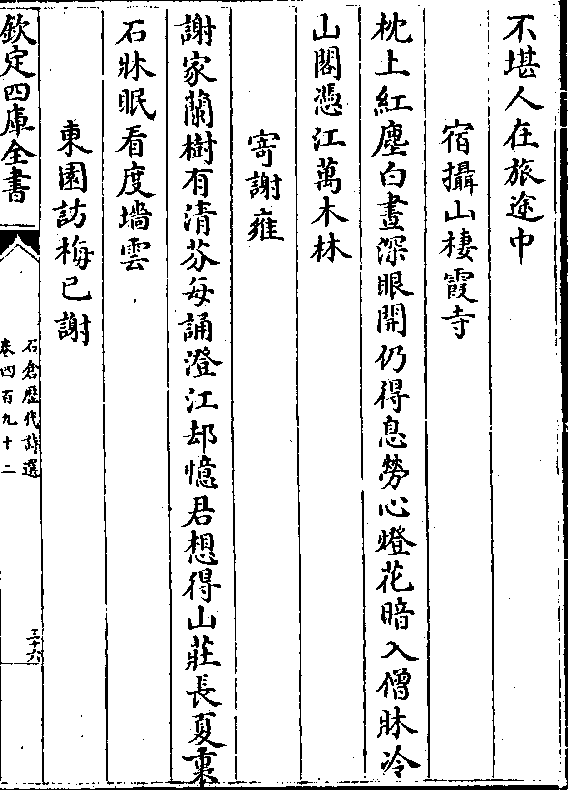 不堪人在旅途中
宿攝山棲霞寺
枕上紅塵白晝深眼開仍得息勞心燈花暗入僧牀冷
山閣憑江萬木林
寄謝雍
謝家蘭樹有清芬每誦澄江却憶君想得山莊長夏裏
石牀眠看度墻雲
東園訪梅已謝
欽定四庫全書
石倉歷代詩選
卷四百九十二
三十六